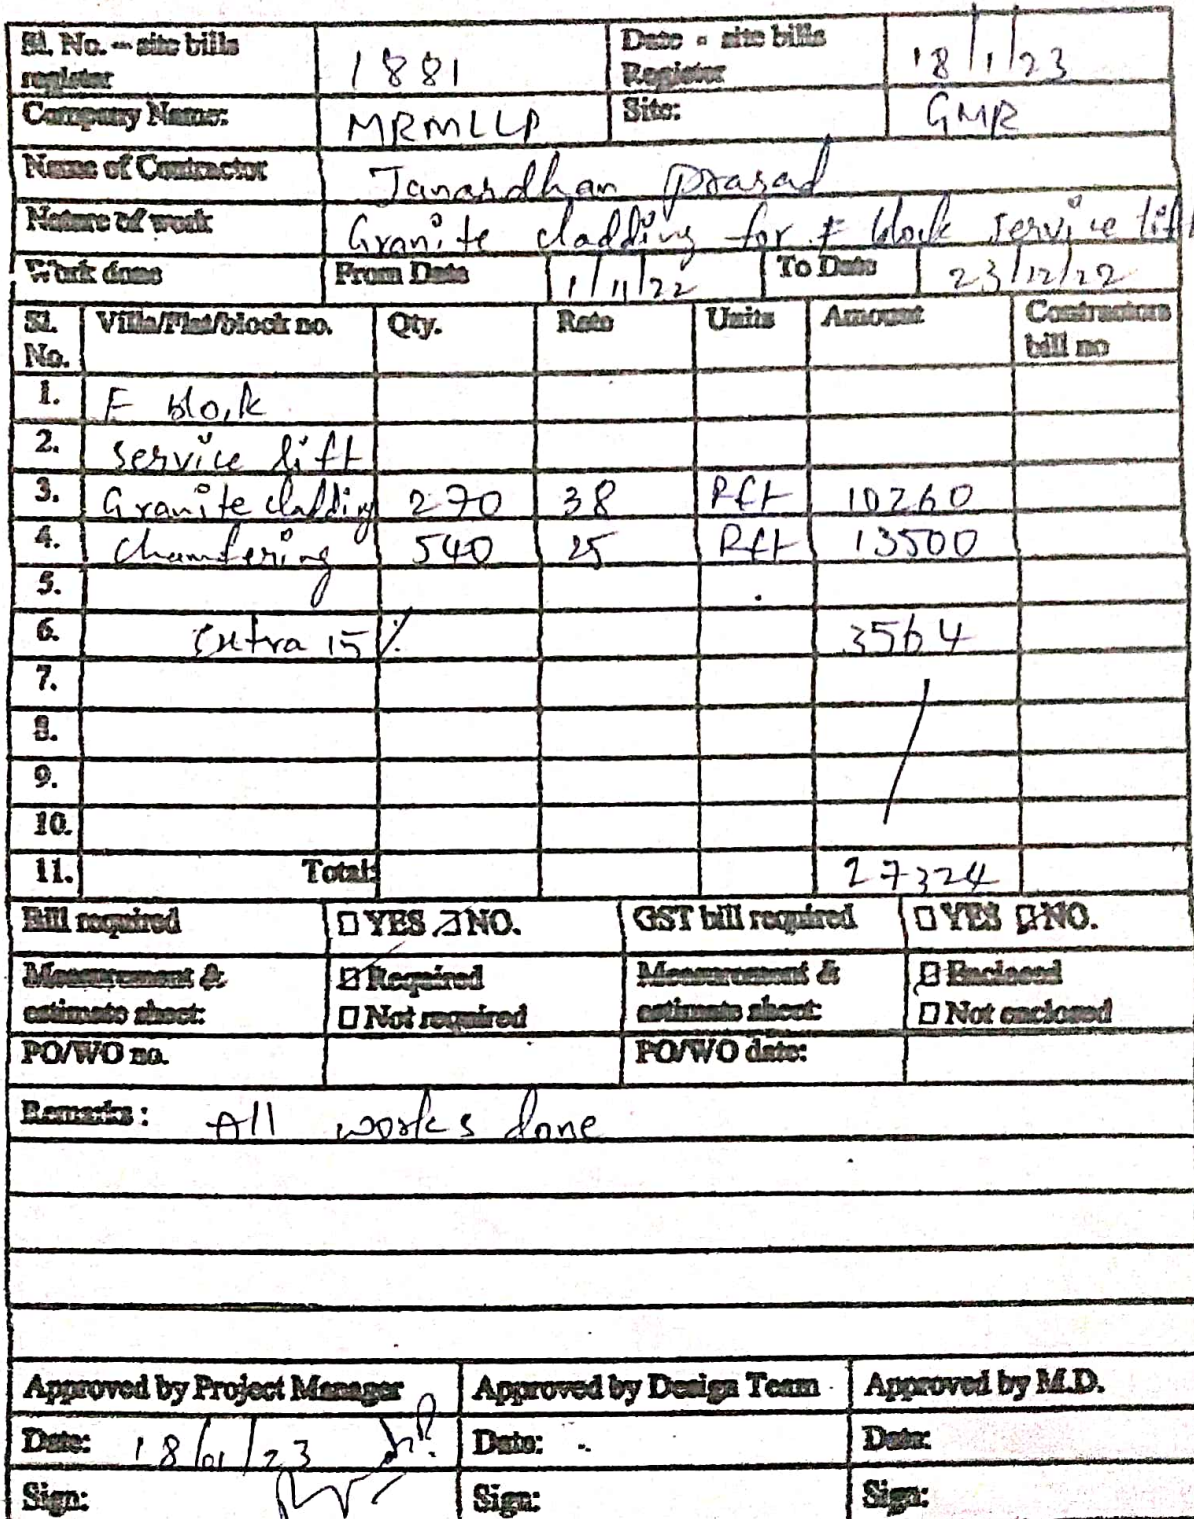 Sl. No. – site bills register 1881 Date - site bills Register 18/1/23
Company Name: MRMLLP Site: GMR
Name of Contractor Janardhan Prasad
Nature of work Granite cladding for F block service lift
Work done From Date 1/11/22 To Date 23/12/22
Sl. No. Villa/Flat/block no. Qty. Rate Units Amount Contractors bill no
1. F block
2. service lift
3. Granite cladding 270 38 Rft 10260
4. Chamfering 540 25 Rft 13500
5.
6. Extra 15 % 3564
7.
8.
9.
10.
11. Total: 27324
Bill required YES NO. GST bill required YES NO.
Measurement & estimate sheet: Required Measurement & estimate sheet: Enclosed
Not required Not enclosed
PO/WO no. PO/WO date:
Remarks : All works done
Approved by Project Manager Approved by Design Team Approved by M.D.
Date: 18/01/23 Date: Date:
Sign: Sign: Sign: